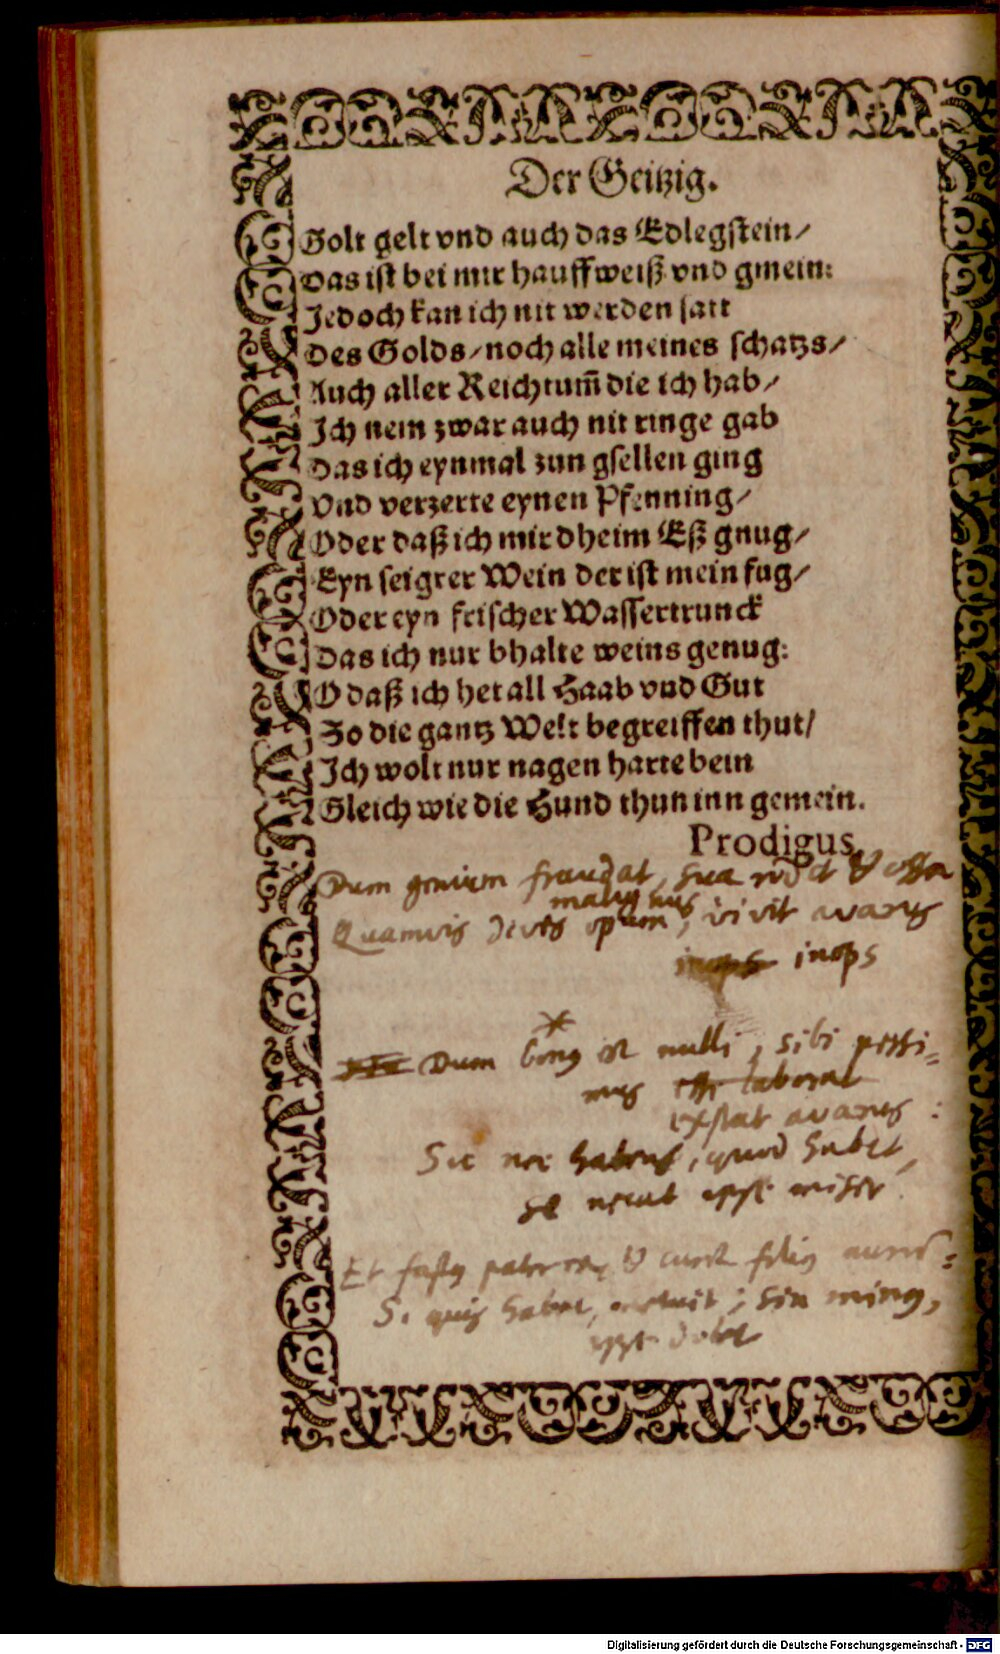 Der Geitzig.
Golt gelt vnd auch das Edlegstein/
Das ist bei mir hauffweiß vnd gmein:
Jedoch kan ich nit werden satt
Des Golds/ noch alle meines schatzs/
Auch aller Reichtum̃ die ich hab/
Ich nem zwar auch nit ringe gab
Das ich eynmal zun gsellen ging
Vnd verzerte eynen Pfenning/
Oder daß ich mir dheim Eß gnug/
Eyn seigrer Wein der ist mein fug/
Oder eyn frischer Wassertrunck
Das ich nur bhalte weins genug:
O daß ich het all Haab vnd Gut
So die gantz Welt begreiffen thut/
Ich wolt nur nagen harte bein
Gleich wie die Hund thun inn gemein.
Prodigus.
Dum genium fraudat, sua rodit & ossa
Quamvis dives opum, vivit avarus
inops
Dum bonus est nulli, sibi pessi-
mus
exstat avarus:
Sic nec habens, quod habet,
se necat ipse miser.
Et
Si quis habet, metuit; sin minus,
dolet